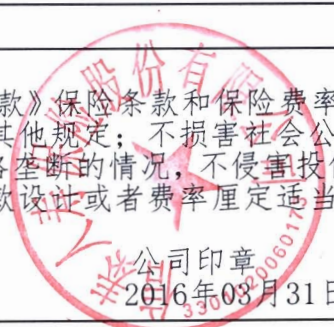 款》保险条款和保险费率
其他规定；不损害社会公
垄断的情况，不侵害投
款设计或者费率厘定适当
公司印章
2016年03月31日
人寿保险股份有限公司